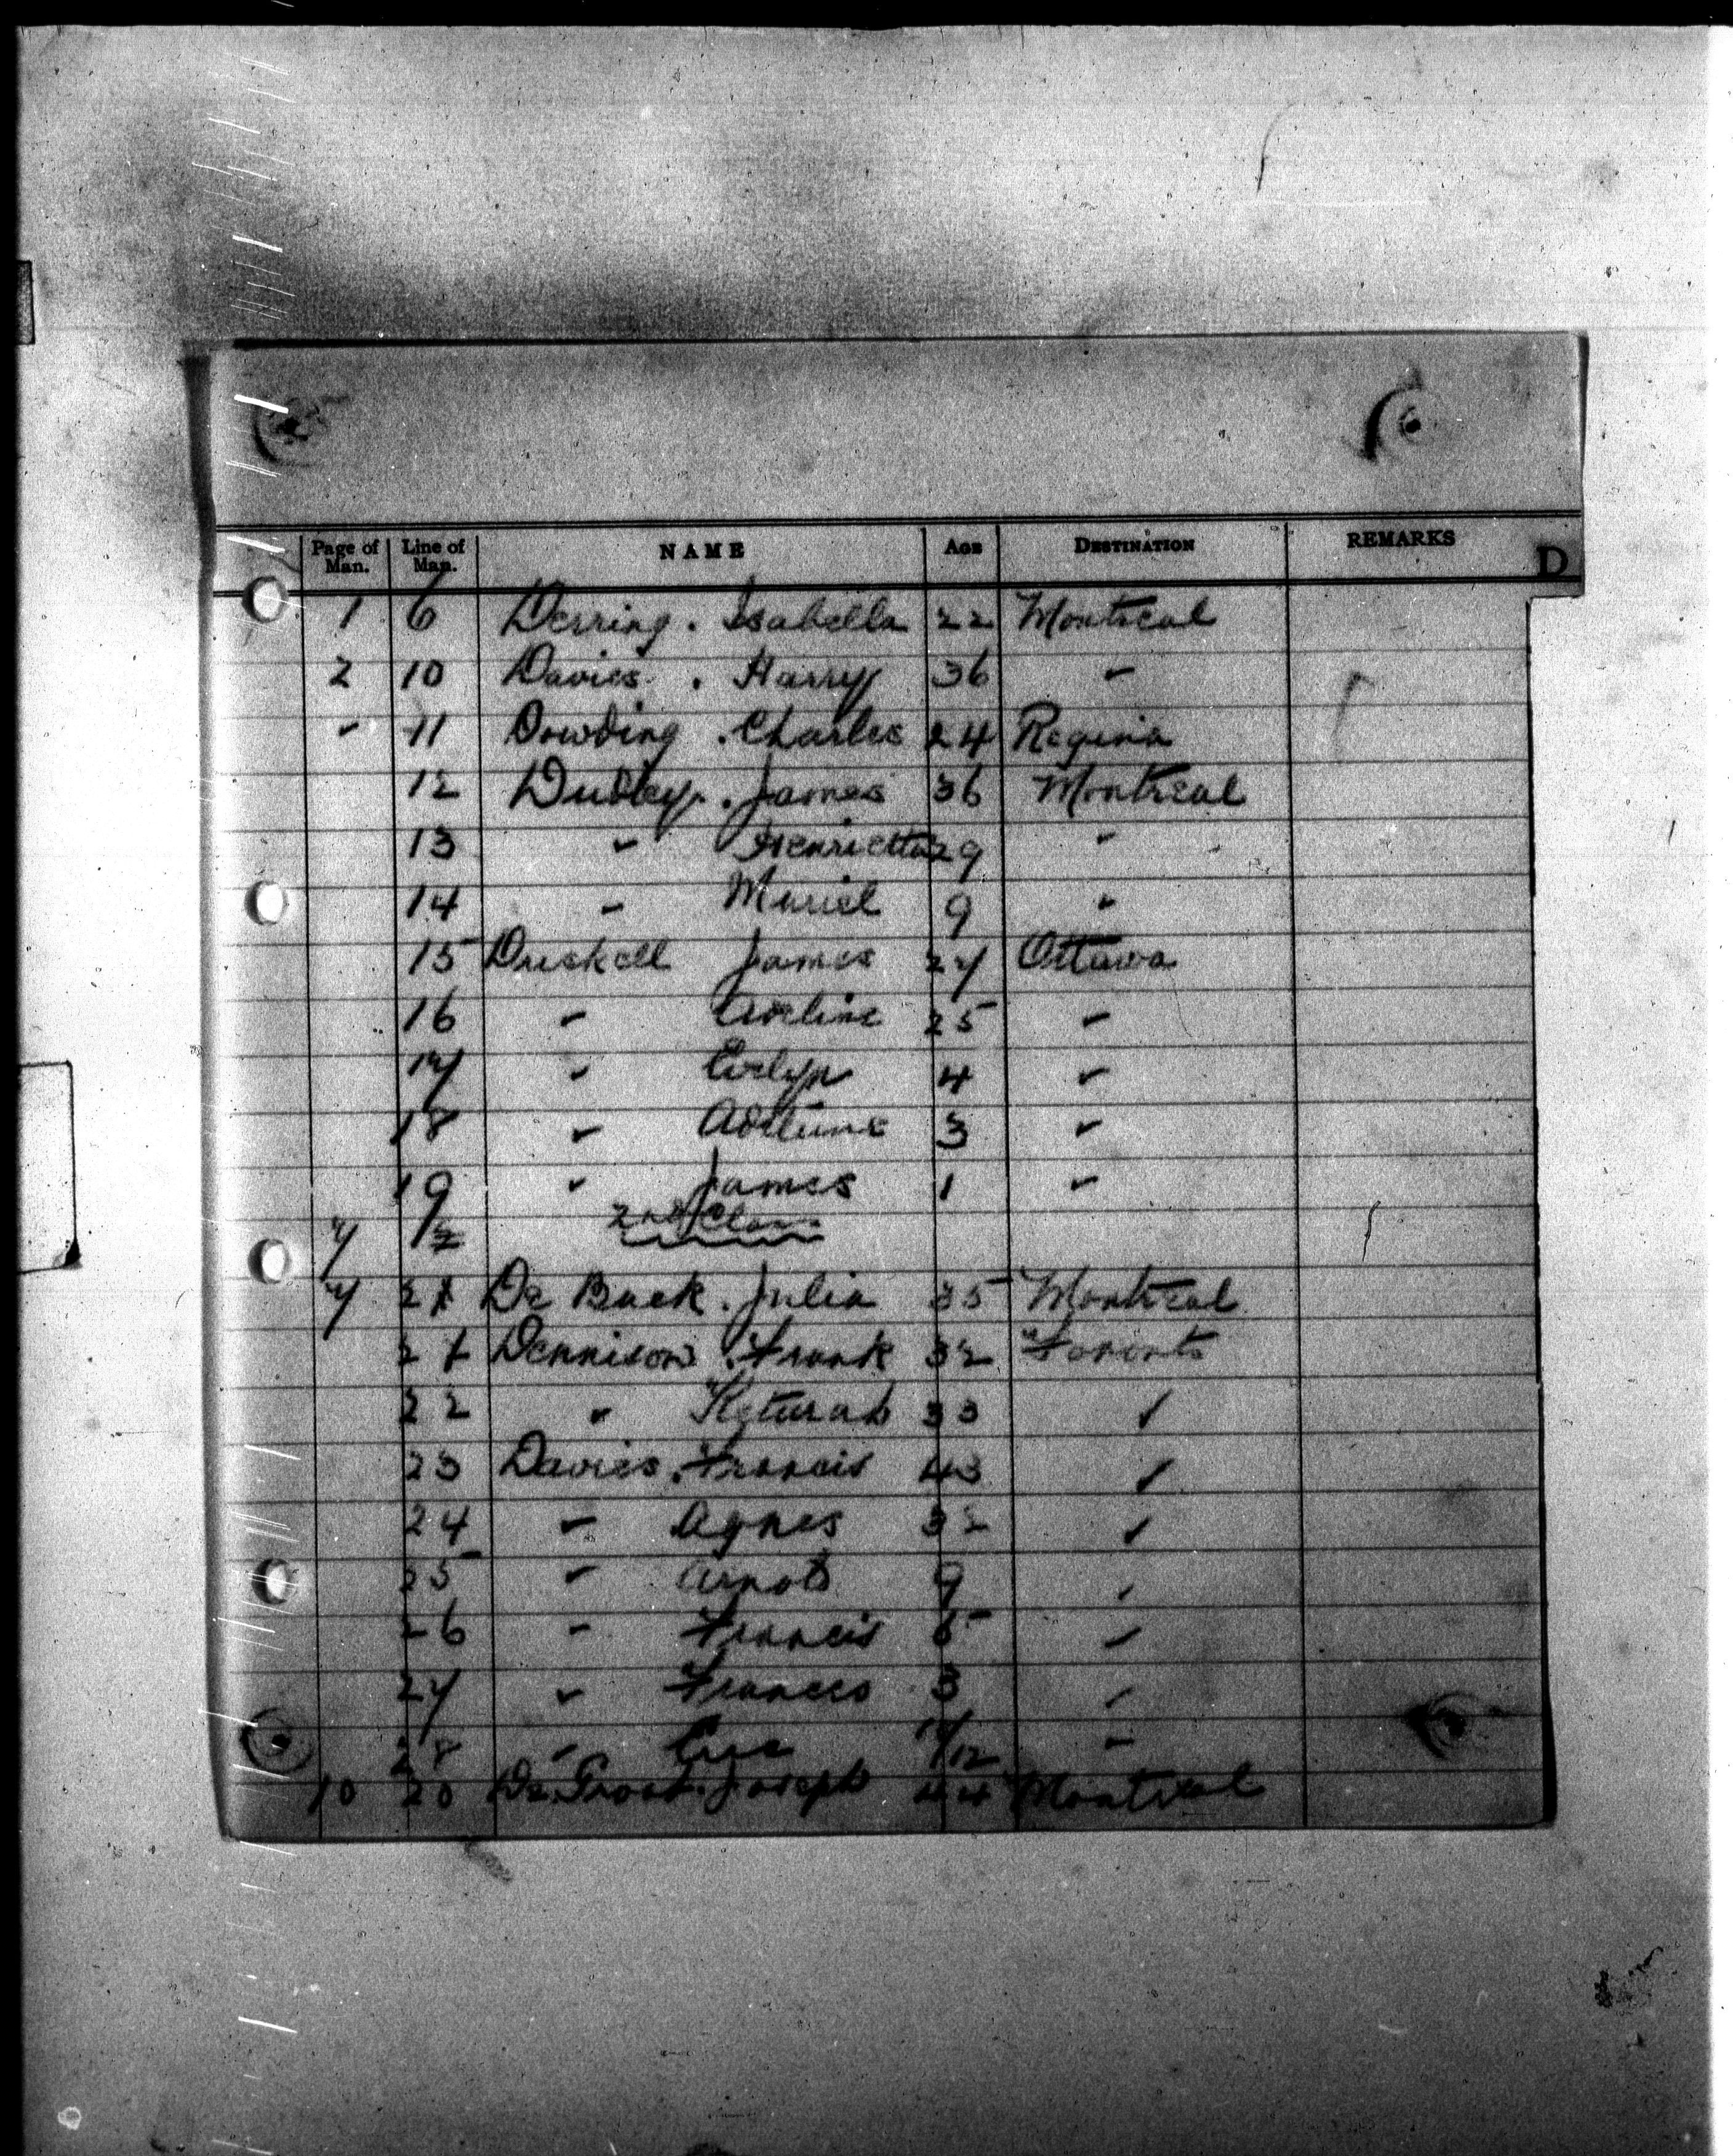 Page of Man. Line of Man. NAME AGE DESTINATION REMARKS
D
1 6 Derring. Isabella 22 Montreal
2 10 Davies. Harry 36 "
" 11 Dowding. Charles 24 Regina
12 Dudley. James 36 Montreal
13 " Henrietta 29 "
14 " Muriel 9 "
15 Driskell James 27 Ottawa
16 " Adeline 25 "
17 " Evelyn 4 "
18 " 3 "
19 " James 1 "
7 2nd Class
7 De Buck. Julia 35 Montreal
21 Dennison. Frank 32 Toronto
22 " Keturah 33 "
23 Davies. Francis 43 "
24 " Agnes 32 "
25 " Arnold 9 "
26 " Francis "
27 " Frances 3 "
28 " "
10 20 De Joseph 44 Montreal